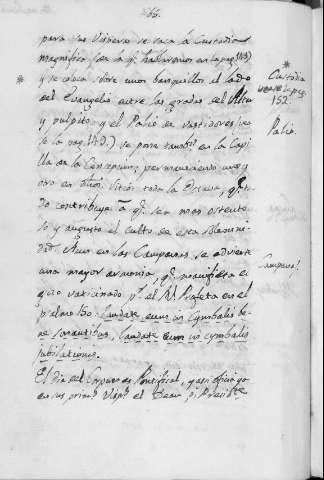 166.
para sus Visperas se saca la Custodia
magnifica (de la q.e hablaremos en la pag. 149)
y se coloca sobre unos banquillos al lado
del Evangelio entre las gradas del Altar
y pulpito, y el Palio de vastidores
la pag. 149.) se pone tambn. en la Capi
lla de la Concepcion; permaneciendo uno y
otro en dhos. sitios toda la Octava, q.e to
do contribuye a q.e sea mas ostento
so y augusto el culto en esta solemni
dad. Aun en las Campanas se advierte
una mayor armonia, q.e manifiesta el
gozo vaticinado p.r el R.l Profeta en el
psalmo 150. Laudate eum in Cymbalis be
ne sonantibus, laudate eum in cymbalis
jubilationis.
El dia del Corpus es Pontifical, y asi oficia
en sus prim.s Visp.s el Dean, o Presid.te
Custodia
vease la pag.
152.
Palio.
Campanas.